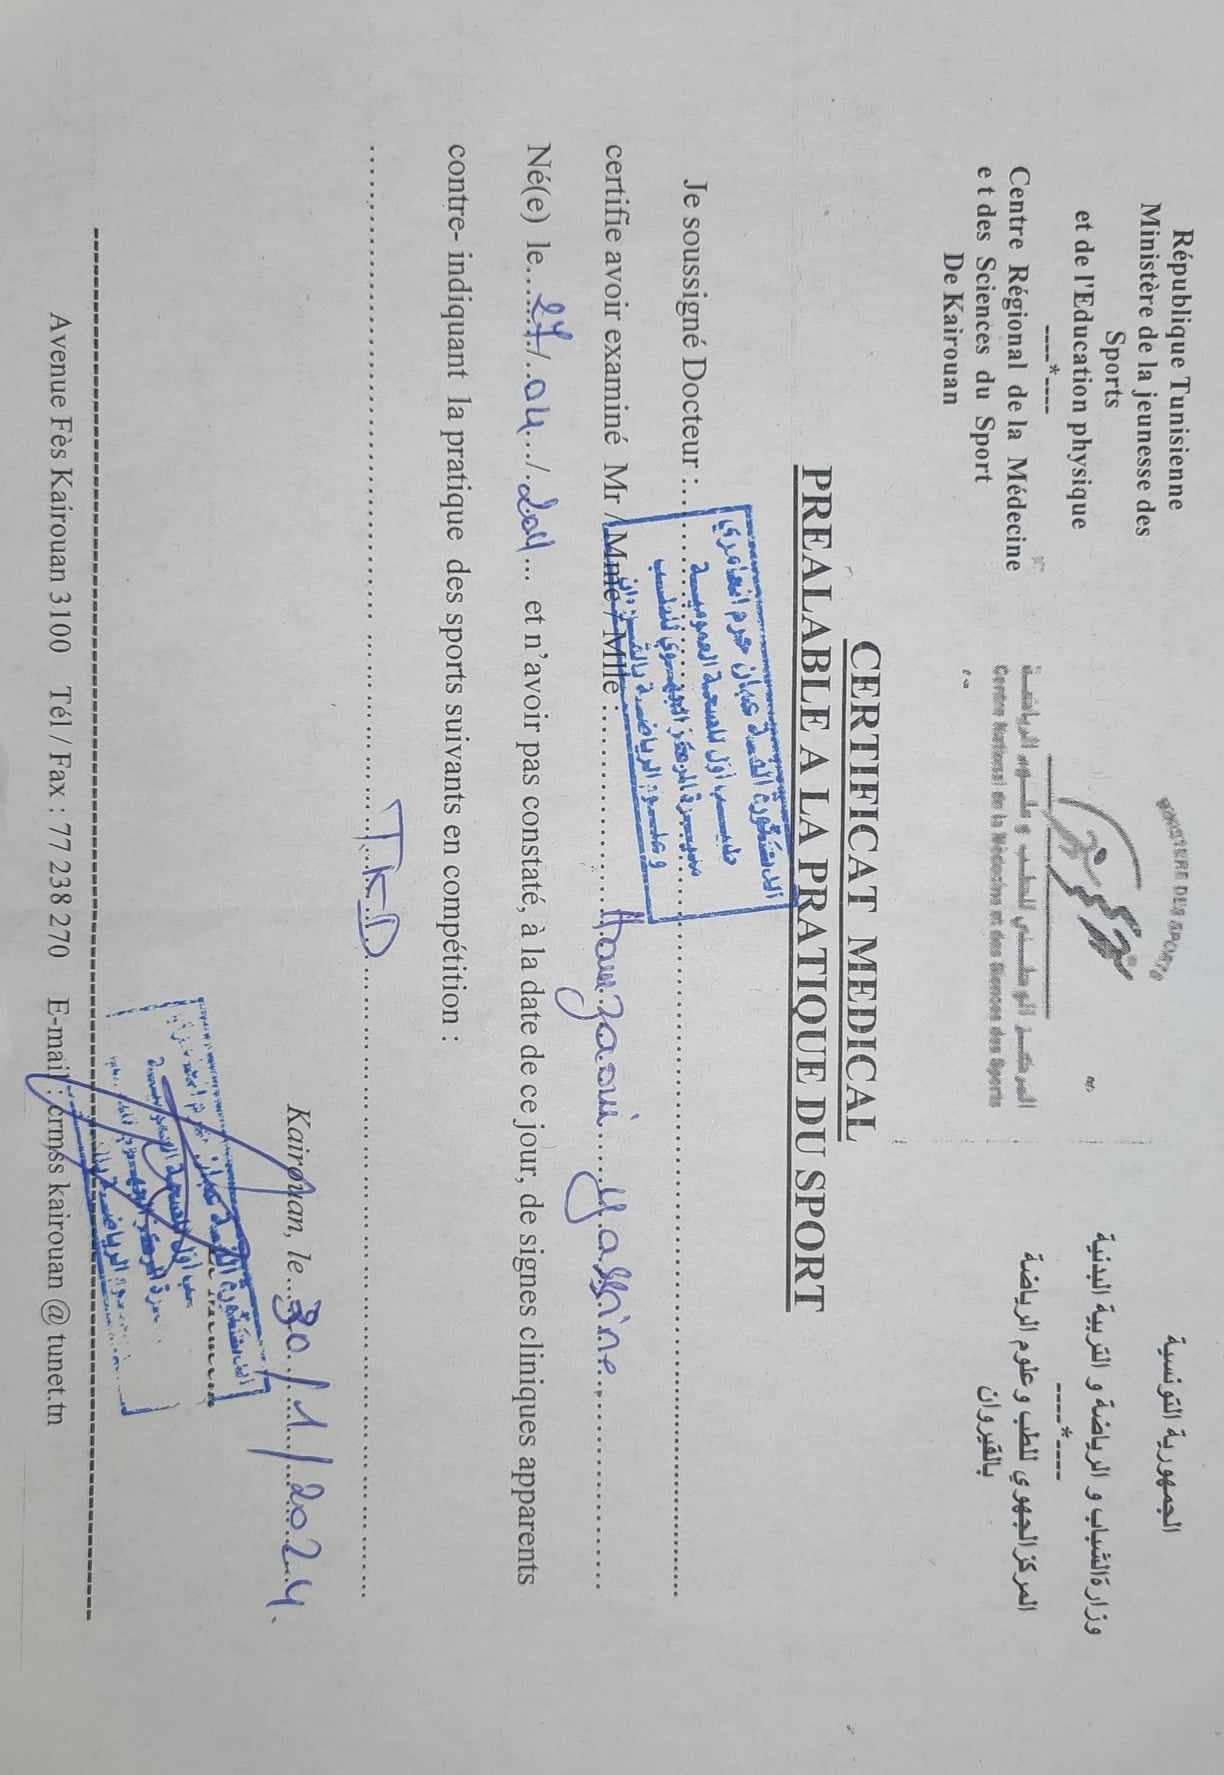 République Tunisienne
Ministère de la jeunesse des
Sports
et de l'Education physique
----*----
Centre Régional de la Médecine
e t des Sciences du Sport
De Kairouan
MINISTERE DES SPORTS
المركز الوطني للطب و علوم الرياضة
Centre National de la Médecine et des Sciences des Sports
الجمهورية التونسية
وزارة الشباب و الرياضة و التربية البدنية
----*----
المركز الجهوي للطب وعلوم الرياضة
بالقيروان
CERTIFICAT MEDICAL
PREALABLE A LA PRATIQUE DU SPORT
Je soussigné Docteur :
الدكتورة
حرم العامري
طبيب أول للصحة العمومية
المركز الجهوي للطب
وعلوم الرياضة بالقيروان
certifie avoir examiné Mr / Mme / Mlle : Hamzaoui Yassine
Né(e) le 27/04/2011 et n'avoir pas constaté, à la date de ce jour, de signes cliniques apparents
contre- indiquant la pratique des sports suivants en compétition :
TKD
Kairouan, le 30/1/2024.
الدكتورة
أول للصحة العمومية
Avenue Fès Kairouan 3100 Tél / Fax : 77 238 270 E-mail : crmss kairouan @ tunet.tn